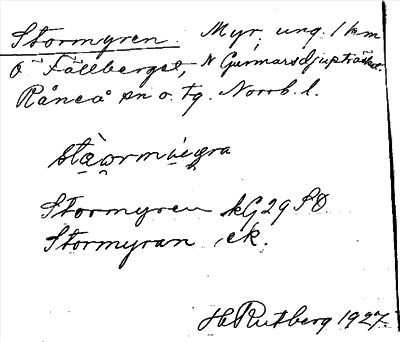 Stormyren. Myr, ung. 1 km
O Fällberget, N Gunnarsdjupträsket.
Råneå sn o. tg. Norrb. l.
Stormyren kG29 SD
Stormyran, ek.
H Rutberg 1927.